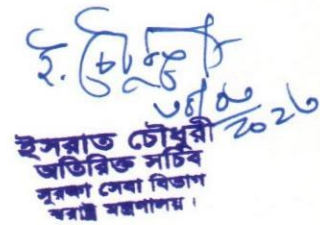 ই. চৌধুরী
ইসরাত চৌধুরী
অতিরিক্ত সচিব
সুরক্ষা সেবা বিভাগ
স্বরাষ্ট্র মন্ত্রণালয়।